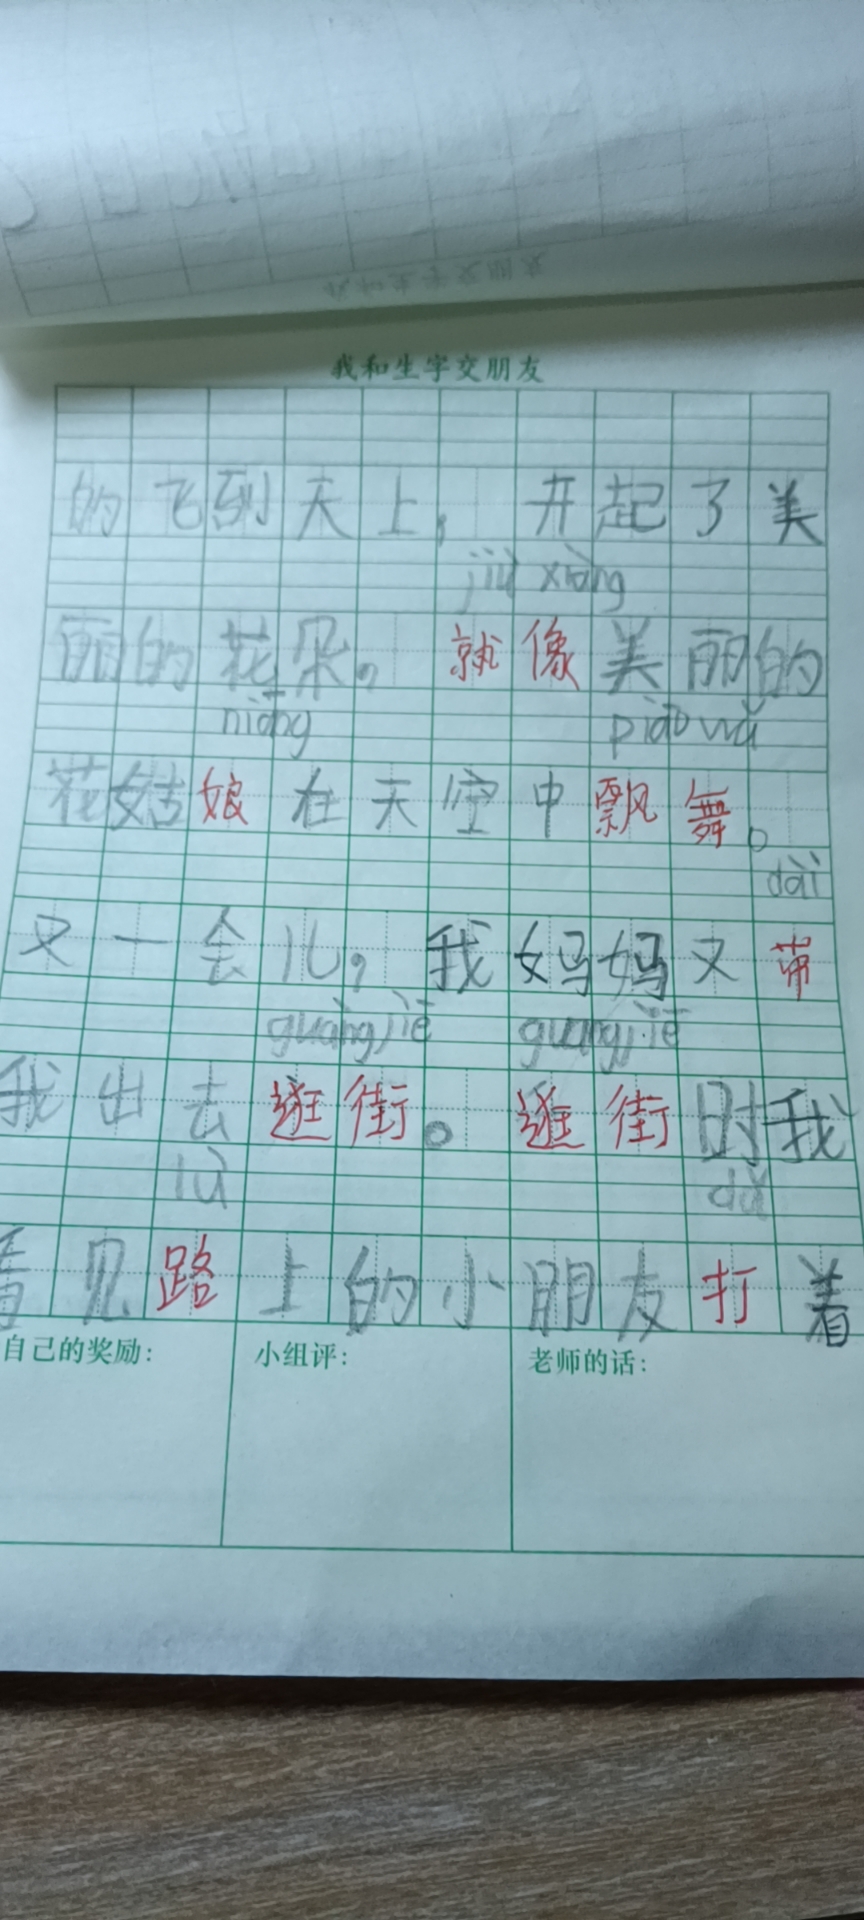 我和生字交朋友
的飞到天上，开起了美
jiù xiàng
丽的花朵。就像美丽的
niáng piāo wǔ
花姑娘在天空中飘舞。
dài
又一会儿，我妈妈又带
guàng jiē guàng jiē
我出去逛街。逛街时我
lù dǎ
看见路上的小朋友打着
自己的奖励： 小组评： 老师的话：